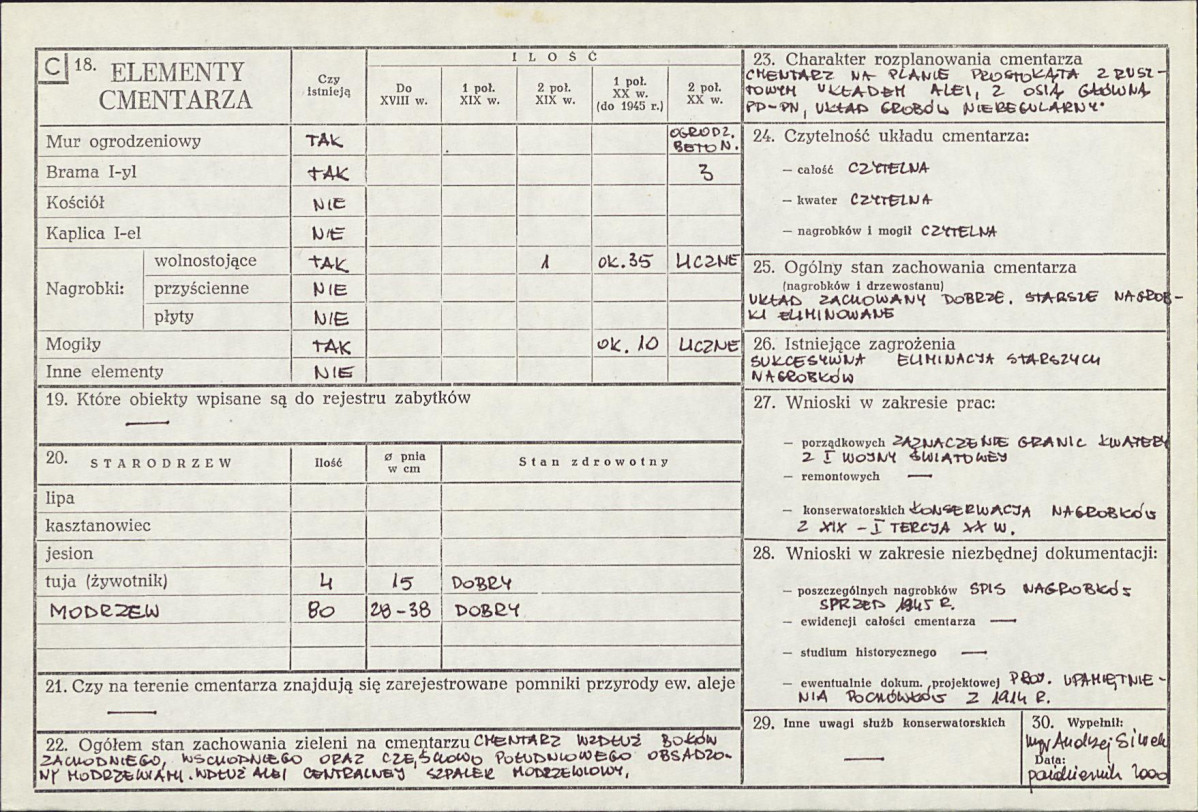 C 18. ELEMENTY CMENTARZA
Czy istnieją
ILOŚĆ
Do XVIII w.
1 poł. XIX w.
2 poł. XIX w.
1 poł. XX w. (do 1945 r.)
2 poł. XX w.
Mur ogrodzeniowy TAK OGRODZ. BETON.
Brama I-yl TAK 3
Kościół NIE
Kaplica I-el NIE
Nagrobki:
wolnostojące TAK 1 OK. 35 LICZNE
przyścienne NIE
płyty NIE
Mogiły TAK OK. 10 LICZNE
Inne elementy NIE
19. Które obiekty wpisane są do rejestru zabytków
—
20. STARODRZEW Ilość ø pnia w cm Stan zdrowotny
lipa
kasztanowiec
jesion
tuja (żywotnik) 4 15 DOBRY
MODRZEW 80 28-38 DOBRY
21. Czy na terenie cmentarza znajdują się zarejestrowane pomniki przyrody ew. aleje
—
22. Ogółem stan zachowania zieleni na cmentarzu CMENTARZ WZDŁUŻ BOKÓW
ZACHODNIEGO, WSCHODNIEGO ORAZ CZĘŚCIOWO POŁUDNIOWEGO OBSADZO-
NY MODRZEWIAMI. WDŁUŻ ALEI CENTRALNEJ SZPALER MODRZEWIOWY.
23. Charakter rozplanowania cmentarza
CMENTARZ NA PLANIE PROSTOKĄTA Z RUSZ-
TOWYM UKŁADEM ALEI, Z OSIĄ GŁÓWNĄ
PD-PN, UKŁAD GROBÓW NIEREGULARNY.
24. Czytelność układu cmentarza:
— całość CZYTELNA
— kwater CZYTELNA
— nagrobków i mogił CZYTELNA
25. Ogólny stan zachowania cmentarza
(nagrobków i drzewostanu)
UKŁAD ZACHOWANY DOBRZE. STARSZE NAGROB-
KI ELIMINOWANE
26. Istniejące zagrożenia
SUKCESYWNA ELIMINACJA STARSZYCH
NAGROBKÓW
27. Wnioski w zakresie prac:
— porządkowych ZAZNACZENIE GRANIC KWATERY
Z I WOJNY ŚWIATOWEJ
— remontowych —
— konserwatorskich KONSERWACJA NAGROBKÓW
Z XIX - I TERCJA XX W.
28. Wnioski w zakresie niezbędnej dokumentacji:
— poszczególnych nagrobków SPIS NAGROBKÓW
SPRZED 1945 R.
— ewidencji całości cmentarza —
— studium historycznego —
— ewentualnie dokum. projektowej PROJ. UPAMIĘTNIE-
NIA POCHÓWKÓW Z 1914 R.
29. Inne uwagi służb konserwatorskich
—
30. Wypełnił:
mgr Andrzej Siwek
Data:
październik 2000